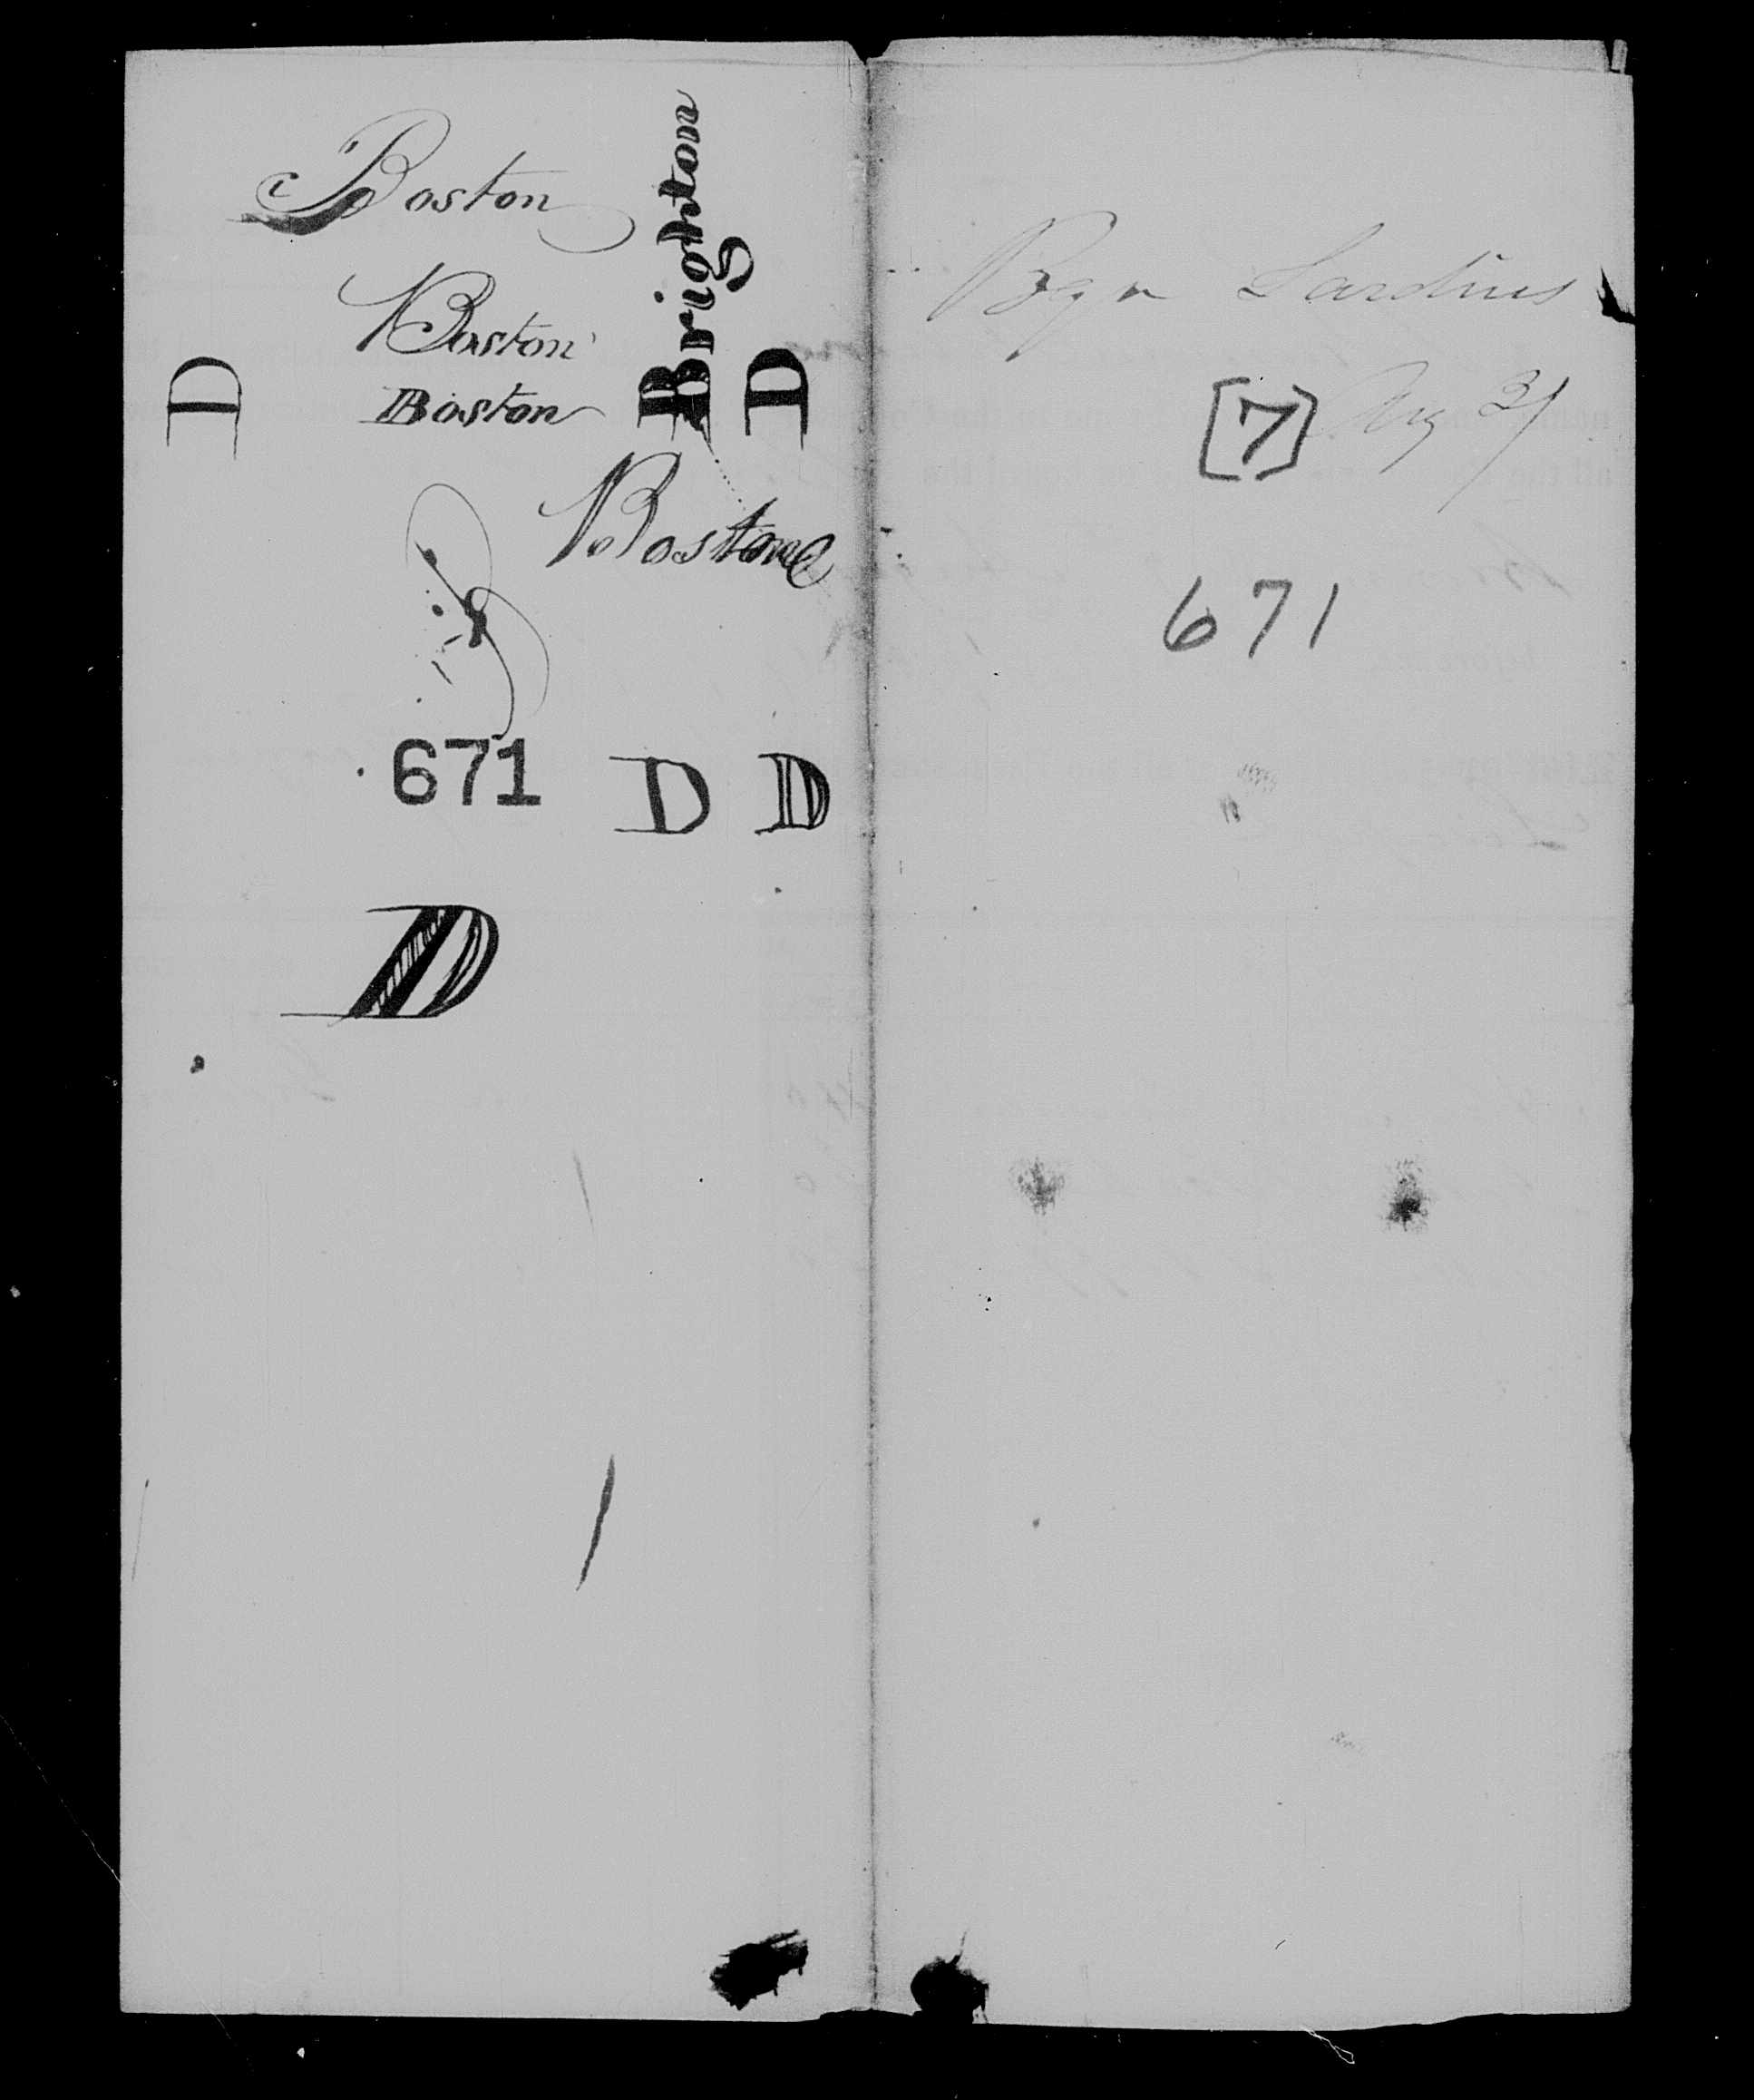 Boston
Boston
Boston
Brighton
D
D
Boston
671
D D
D
Brgn Sardius
[7] Aug 31
671